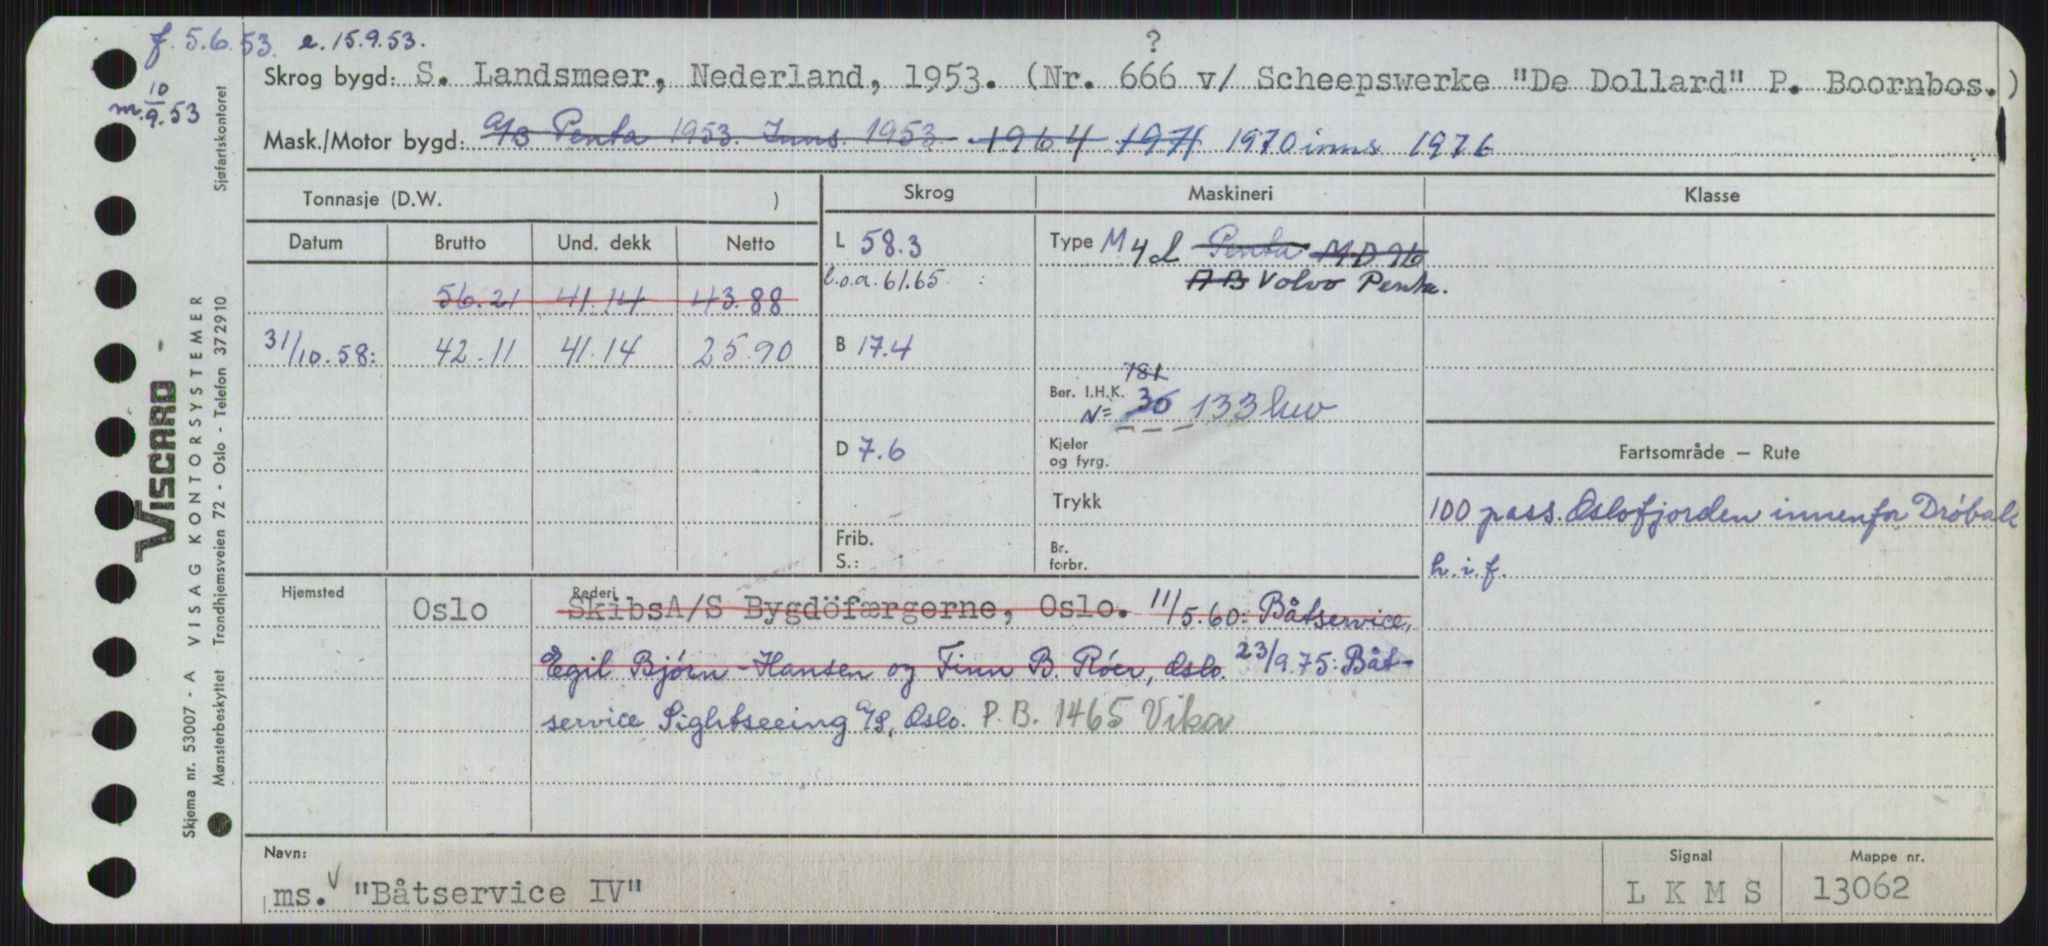 f. 5.6.53. e. 15.9.53.
m. 10/9.53
?
Skrog bygd: S. Landsmeer, Nederland, 1953. (Nr. 666 v/ Scheepswerke "De Dollard" P. Boornbos.)
Mask./Motor bygd: A/B Penta 1953. Inns. 1953 1964 1971 1970 inns 1976
Tonnasje (D.W. )
Skrog
Maskineri
Klasse
Datum Brutto Und. dekk Netto
56.21 41.14 43.88
31/10.58: 42.11 41.14 25.90
L 58.3
l.o.a. 61.65
B 17.4
D 7.6
Frib.
S.:
Type M 4 d Penta MD 96
AB Volvo Penta.
781
Ber. I.H.K. 30 133 kw
N=
Kjeler
og fyrg.
Trykk
Br.
forbr.
Fartsområde — Rute
100 pass. Oslofjorden innenfor Dröbak
h.i.f.
Hjemsted
Oslo
Rederi
SkibsA/S Bygdöfærgerne, Oslo. 11/5.60: Båtservice,
Egil Bjørn-Hansen og Finn B. Röer, Oslo. 23/9.75: Båt-
service Sightseeing A/S, Oslo. P.B. 1465 Vika
Navn:
ms. V "Båtservice IV"
Signal
L K M S
Mappe nr.
13062
Sjøfartskontoret
VISCARD
VISAG KONTORSYSTEMER
Trondhjemsveien 72 - Oslo - Telefon 372910
Skjema nr. 53007 - A
Mønsterbeskyttet